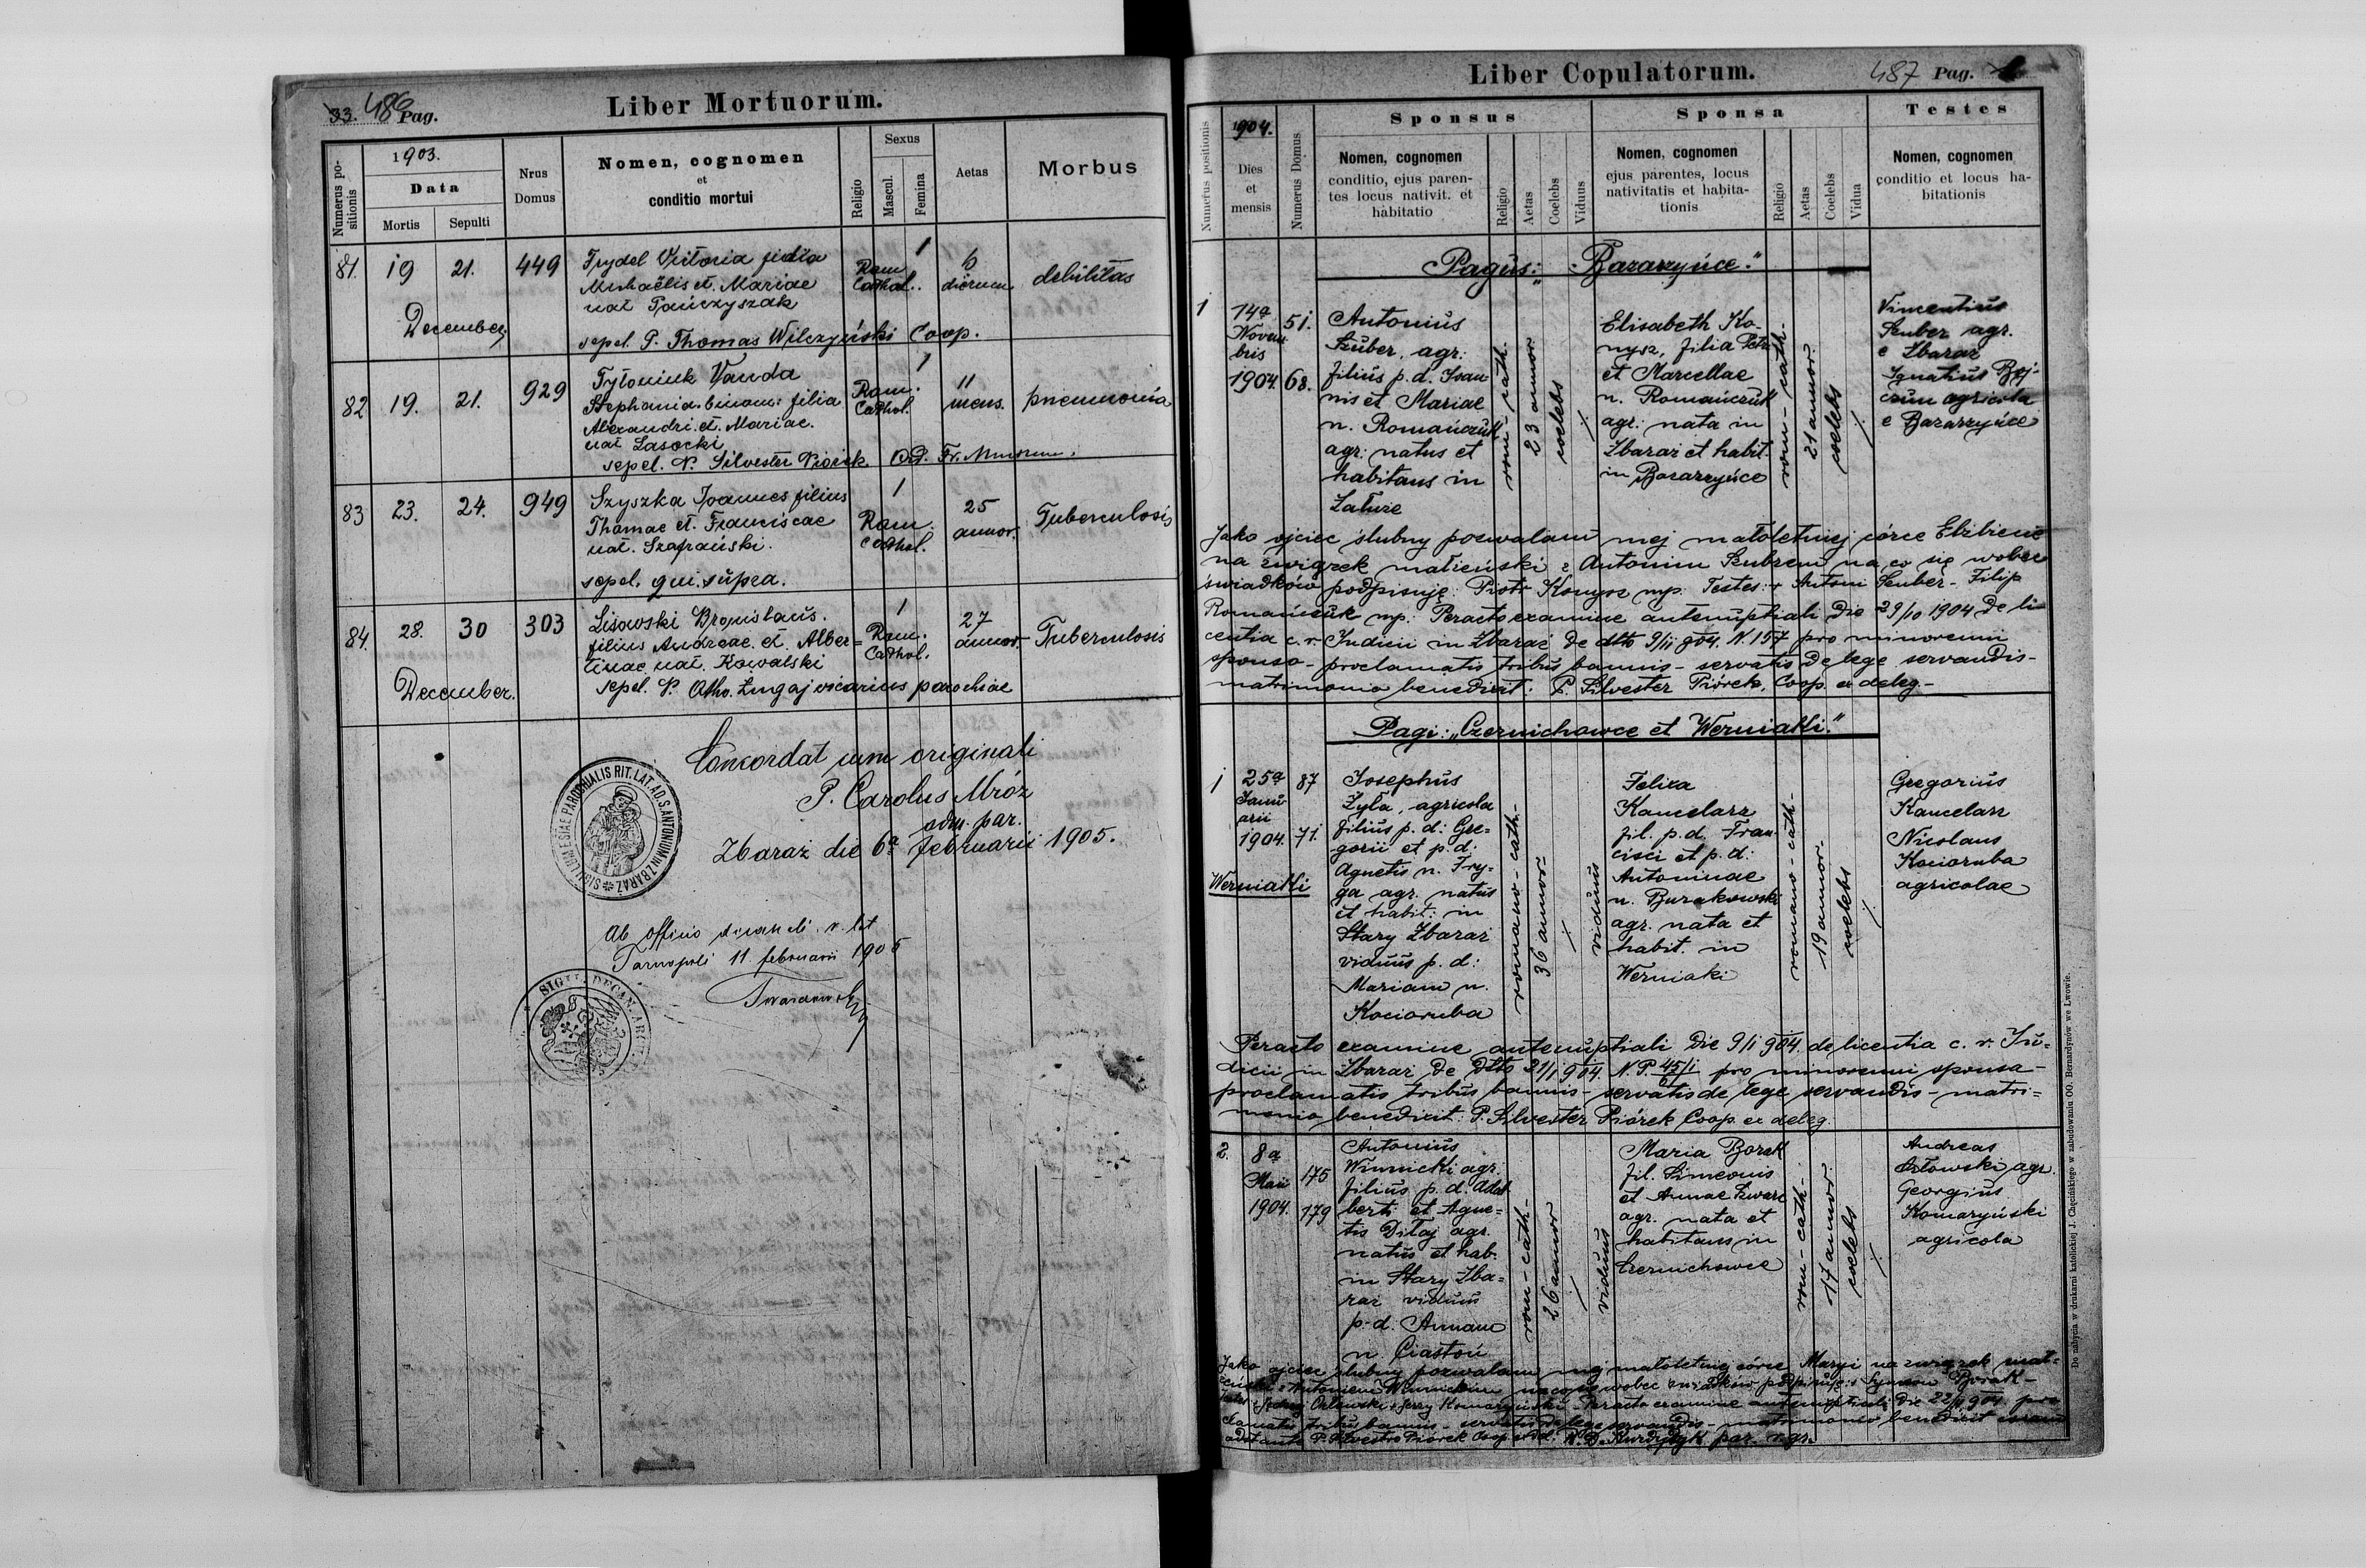 33. 486 Pag.
Liber Mortuorum.
Numerus positionis
1903.
Data
Mortis
Sepulti
Nrus Domus
Nomen, cognomen
et
conditio mortui
Religio
Sexus
Mascul.
Femina
Aetas
Morbus
81. 19 21. 449
Frydel Victoria filia
Michaëlis et. Mariae
nat
Rom Cathol.
1
6 dierum
debilitas
December.
sepel. P. Thomas Wilczyński Coop.
82 19. 21. 929
Tytoniuk Vanda
Stephania. binom: filia
Alexandri. et. Mariae.
nat Lasocki
Rom. Cathol.
1
11 mens.
pneumonia
sepel. P. Silvester Piórek. Ord. Fr.
83 23. 24. 949
Szyszka Joannes filius
Thomae et. Franciscae
nat. Szafrański.
Rom. Cathol.
1
25 annor.
Tuberculosis
sepel. qui. supra.
84. 28. 30 303
Lisowski Bronislaus.
filius Andreae. et. Alber=
tinae nat. Kowalski
Rom. Cathol.
1
27 annor.
Tuberculosis
December.
sepel. P. Otho. vicarius parochiae
Concordat cum originali
P. Carolus Mróz
adm. par.
Zbaraż die 6ª februarii 1905.
SIGILLUM ECCLESIAE PAROCHIALIS RIT. LAT. AD. S. ANTONIUM IN ZBARAŻ
Ab officio decanali r. lat
Tarnopoli 11 februarii 1905
Liber Copulatorum.
487 Pag.
Numerus positionis
1904.
Dies
et
mensis
Numerus Domus
Sponsus
Nomen, cognomen
conditio, ejus paren-
tes locus nativit. et
habitatio
Religio
Aetas
Coelebs
Viduus
Sponsa
Nomen, cognomen
ejus parentes, locus
nativitatis et habita-
tionis
Religio
Aetas
Coelebs
Vidua
Testes
Nomen, cognomen
conditio et locus ha-
bitationis
Pagus: „Bazarzyńce."
1
14ª
Novem
bris
1904.
51.
68.
Antonius
Szuber, agr:
filius p. d. Joan
nis et Mariae
n. Romańczuk
agr: natus et
habitans in
Załuże
rom-cath.
23 annor.
coelebs
Elisabeth Ko-
nysz, filia Petri
et Marcellae
n. Romańczuk
agr: nata in
Zbaraż et habit.
in Bazarzyńce
rom-cath.
21 annor.
coelebs
Vincentius
Szuber agr.
e Zbaraż
Ignatius
agricola
e Bazarzyńce
Jako ojciec ślubny pozwalam mej małoletniej córce Elżbiecie
na związek małżeński z Antonim Szubrem na co się wobec
świadków podpisuję: Piotr Konysz mp. Testes: + Antoni Szuber - Filip
Romańczuk mp. Peracto examine antenuptiali die 29/10 1904 de li
centia c. r. Judicii in Zbaraż de dtto 9/11 904. N. 157 pro minorenni
sponsa - proclamatis tribus bannis - servatis de lege servandis -
matrimonio benedixit: P. Silvester Piórek, Coop. ex deleg. -
Pagi: „Czernichowce et Werniaki."
1
25ª
Janu
arii
1904.
87
71.
Werniaki
Josephus
Żyła, agricola
filius p. d: Gre=
gorii et p. d:
Agnetis n. Fry=
ga agr. natus
et habit: in
Stary Zbaraż
viduus p. d:
Mariam n.
Kocioruba
romano-cath.
36 annor.
viduus
Felixa
Kancelarz
fil. p. d. Fran
cisci et p. d:
Antoninae
n. Burakowski
agr. nata et
habit. in
Werniaki
romano-cath.
19 annor.
coelebs
Gregorius
Kancelarz
Nicolaus
Kocioruba
agricolae
Peracto examine antenuptiali die 9/1 904. de licentia c. r. Ju=
dicii in Zbaraż de dtto 21/1 904. N. P. 45/1 pro minorenni sponsa -
proclamatis tribus bannis - servatis de lege servandis - matri=
monio benedixit: P. Silvester Piórek Coop. ex deleg.
2.
8ª
Maii
1904.
175
179
Antonius
Winnicki agr.
filius p. d. Adal
berti et Agne=
tis Ditaj agr.
natus et hab.
in Stary Zba=
raż viduus
p. d. Annam
n. Ciastoń
rom-cath.
26 annor
viduus
Maria Borak
fil. Simeonis
et Annae Szwarc
agr. nata et
habitans in
Czernichowce
rom-cath.
17 annor.
coelebs
Andreas
Orłowski agr.
Georgius
Komaryński
agricola
Jako ojciec ślubny pozwalam mej małoletniej córce Maryi na związek mał=
żeński z Antonim Winnickim na co się wobec świadków podpisuję: + Symeon Borak -
Testes: + Jędrzej Orłowski + Jerzy Komaryński - Peracto examine antenuptiali die 904 pro
clamatis tribus bannis - servatis de lege servandis - matrimonio benedixit coram
adstante P. Silvestro Piórek Coop par. r. gr.
Do nabycia w drukarni katolickiej J. Chęcińskiego w zabudowaniu OO. Bernardynów we Lwowie.